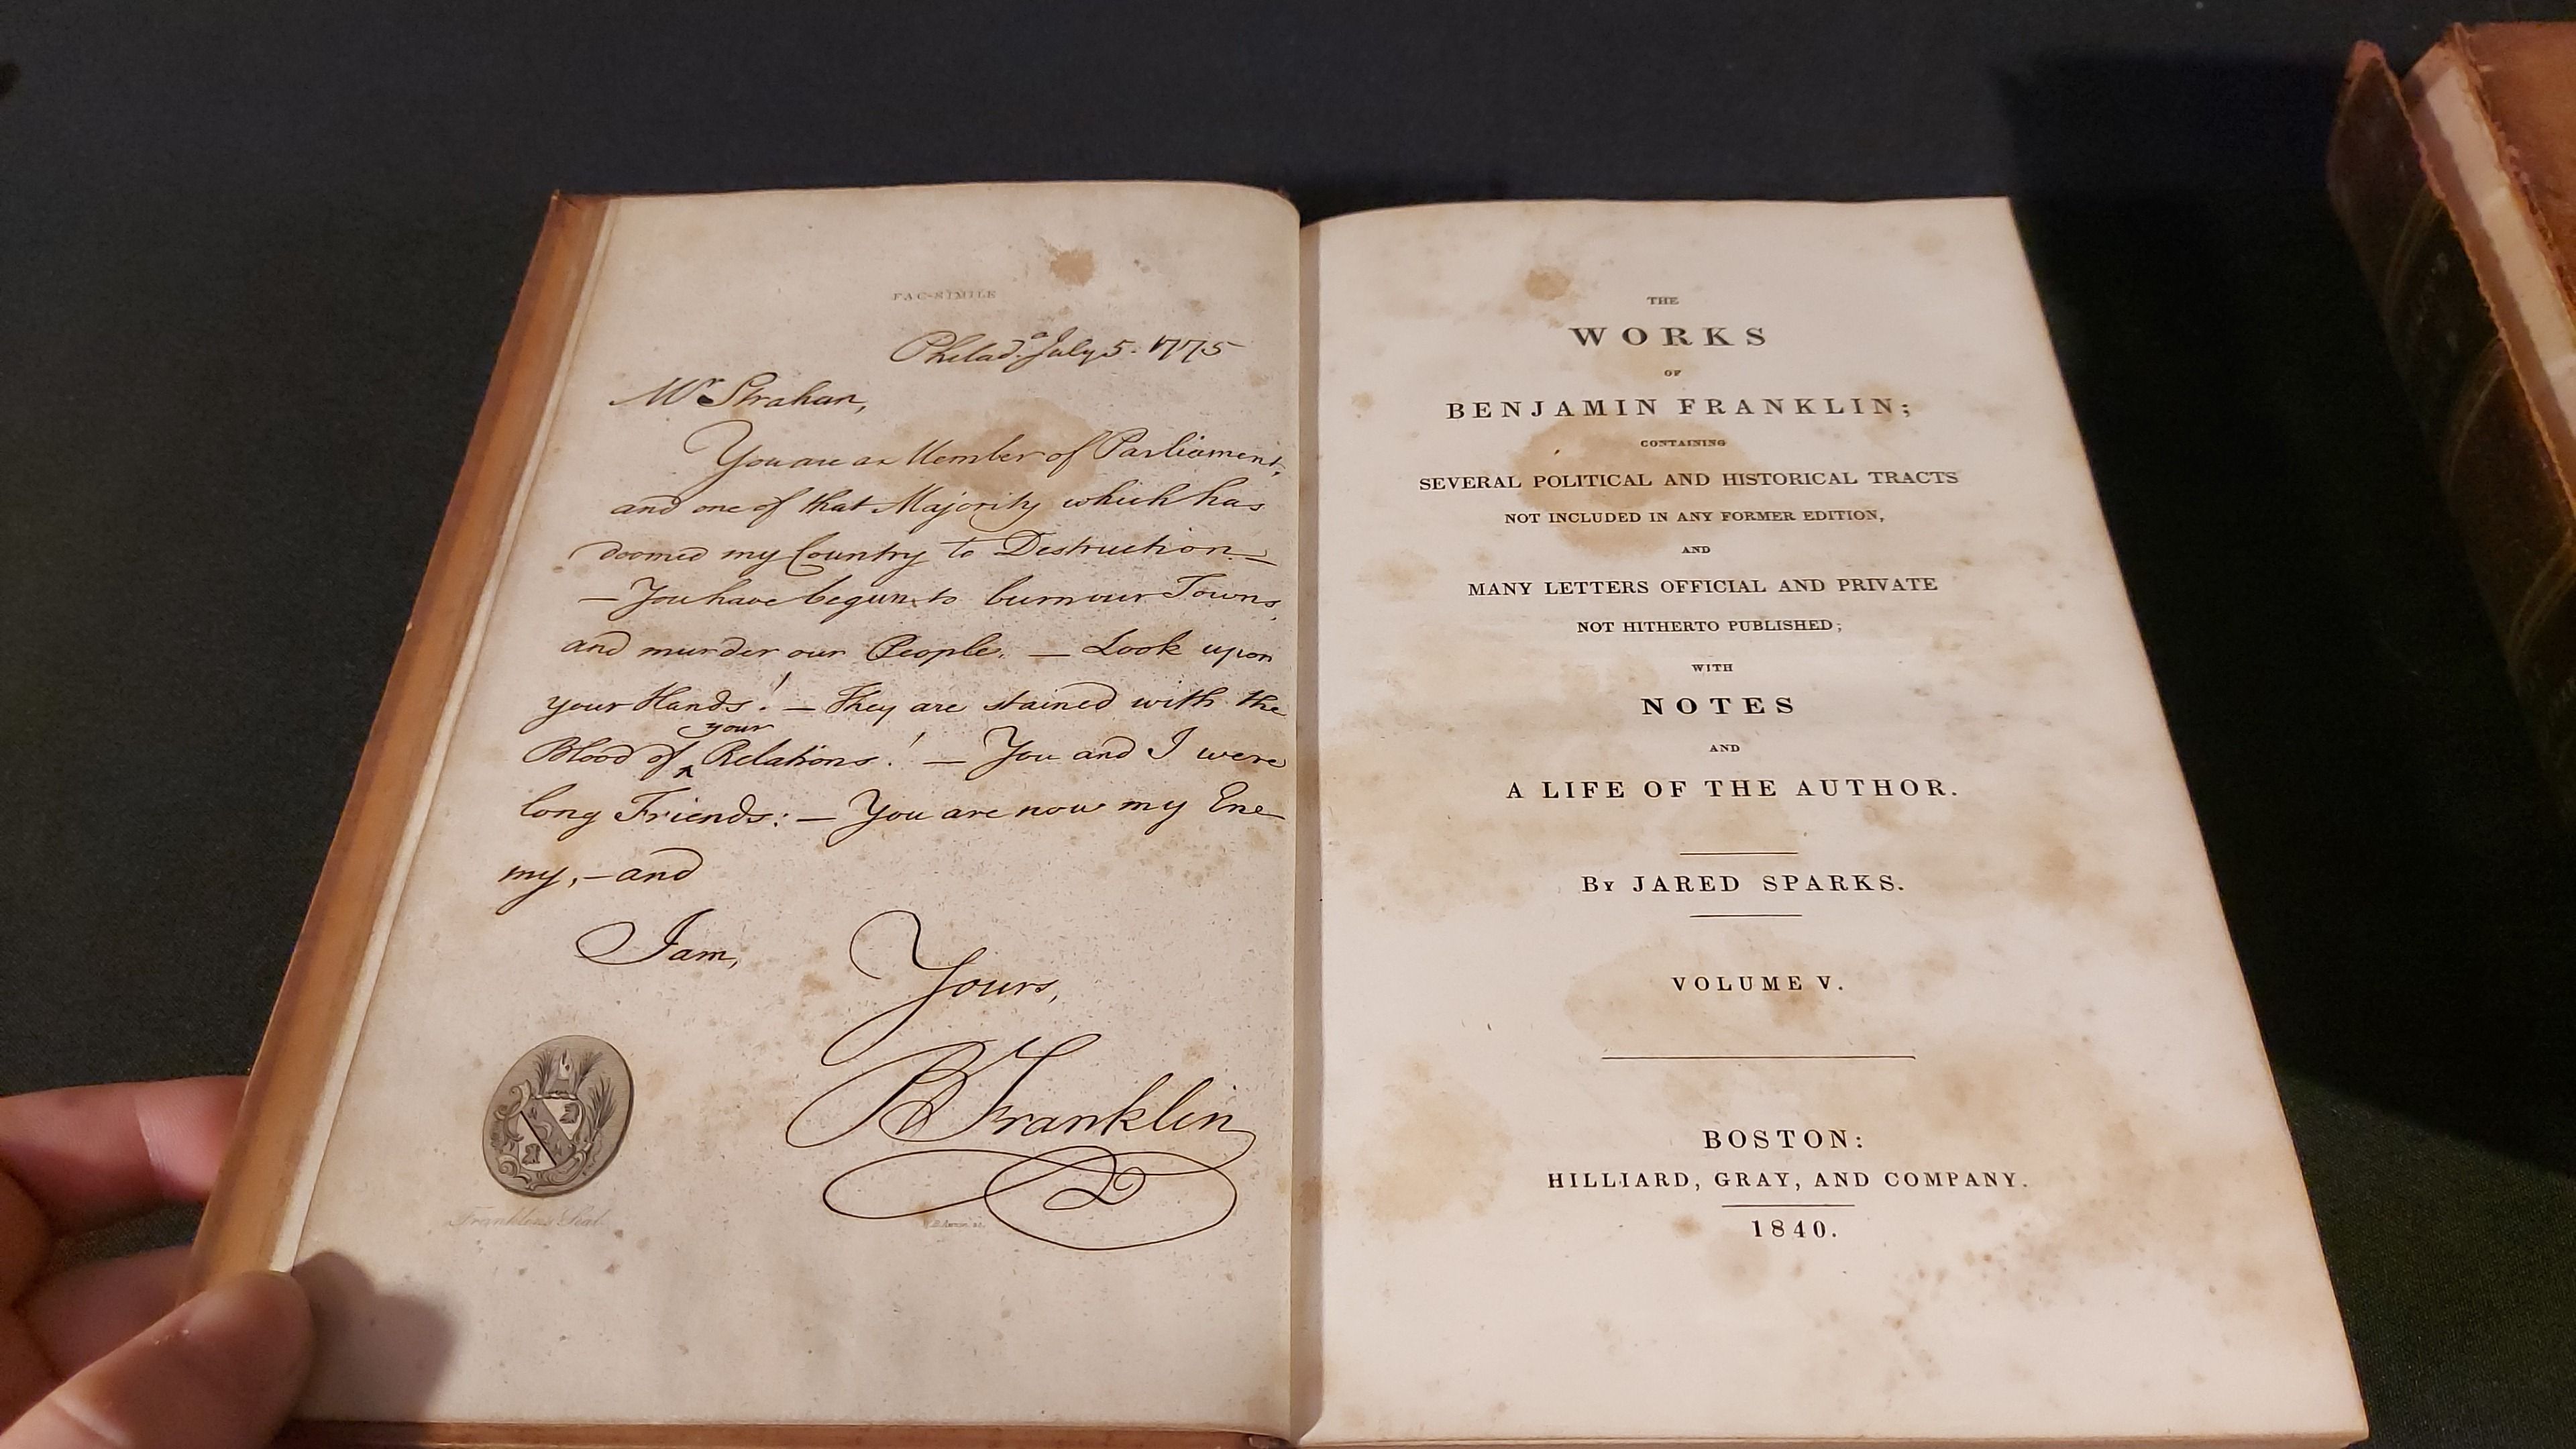 FAC-SIMILE
Philad.ª July 5. 1775
Mr Strahan,
You are a Member of Parliament,
and one of that Majority which has
doomed my Country to Destruction.—
— You have begun to burn our Towns,
and murder our People. — Look upon
your Hands! — They are stained with the
your
Blood of ‸ Relations! — You and I were
long Friends: — You are now my Ene-
my, — and
I am,
Yours,
B Franklin
Franklin's Seal.
THE
WORKS
OF
BENJAMIN FRANKLIN;
CONTAINING
SEVERAL POLITICAL AND HISTORICAL TRACTS
NOT INCLUDED IN ANY FORMER EDITION,
AND
MANY LETTERS OFFICIAL AND PRIVATE
NOT HITHERTO PUBLISHED;
WITH
NOTES
AND
A LIFE OF THE AUTHOR.
By JARED SPARKS.
VOLUME V.
BOSTON:
HILLIARD, GRAY, AND COMPANY.
1840.